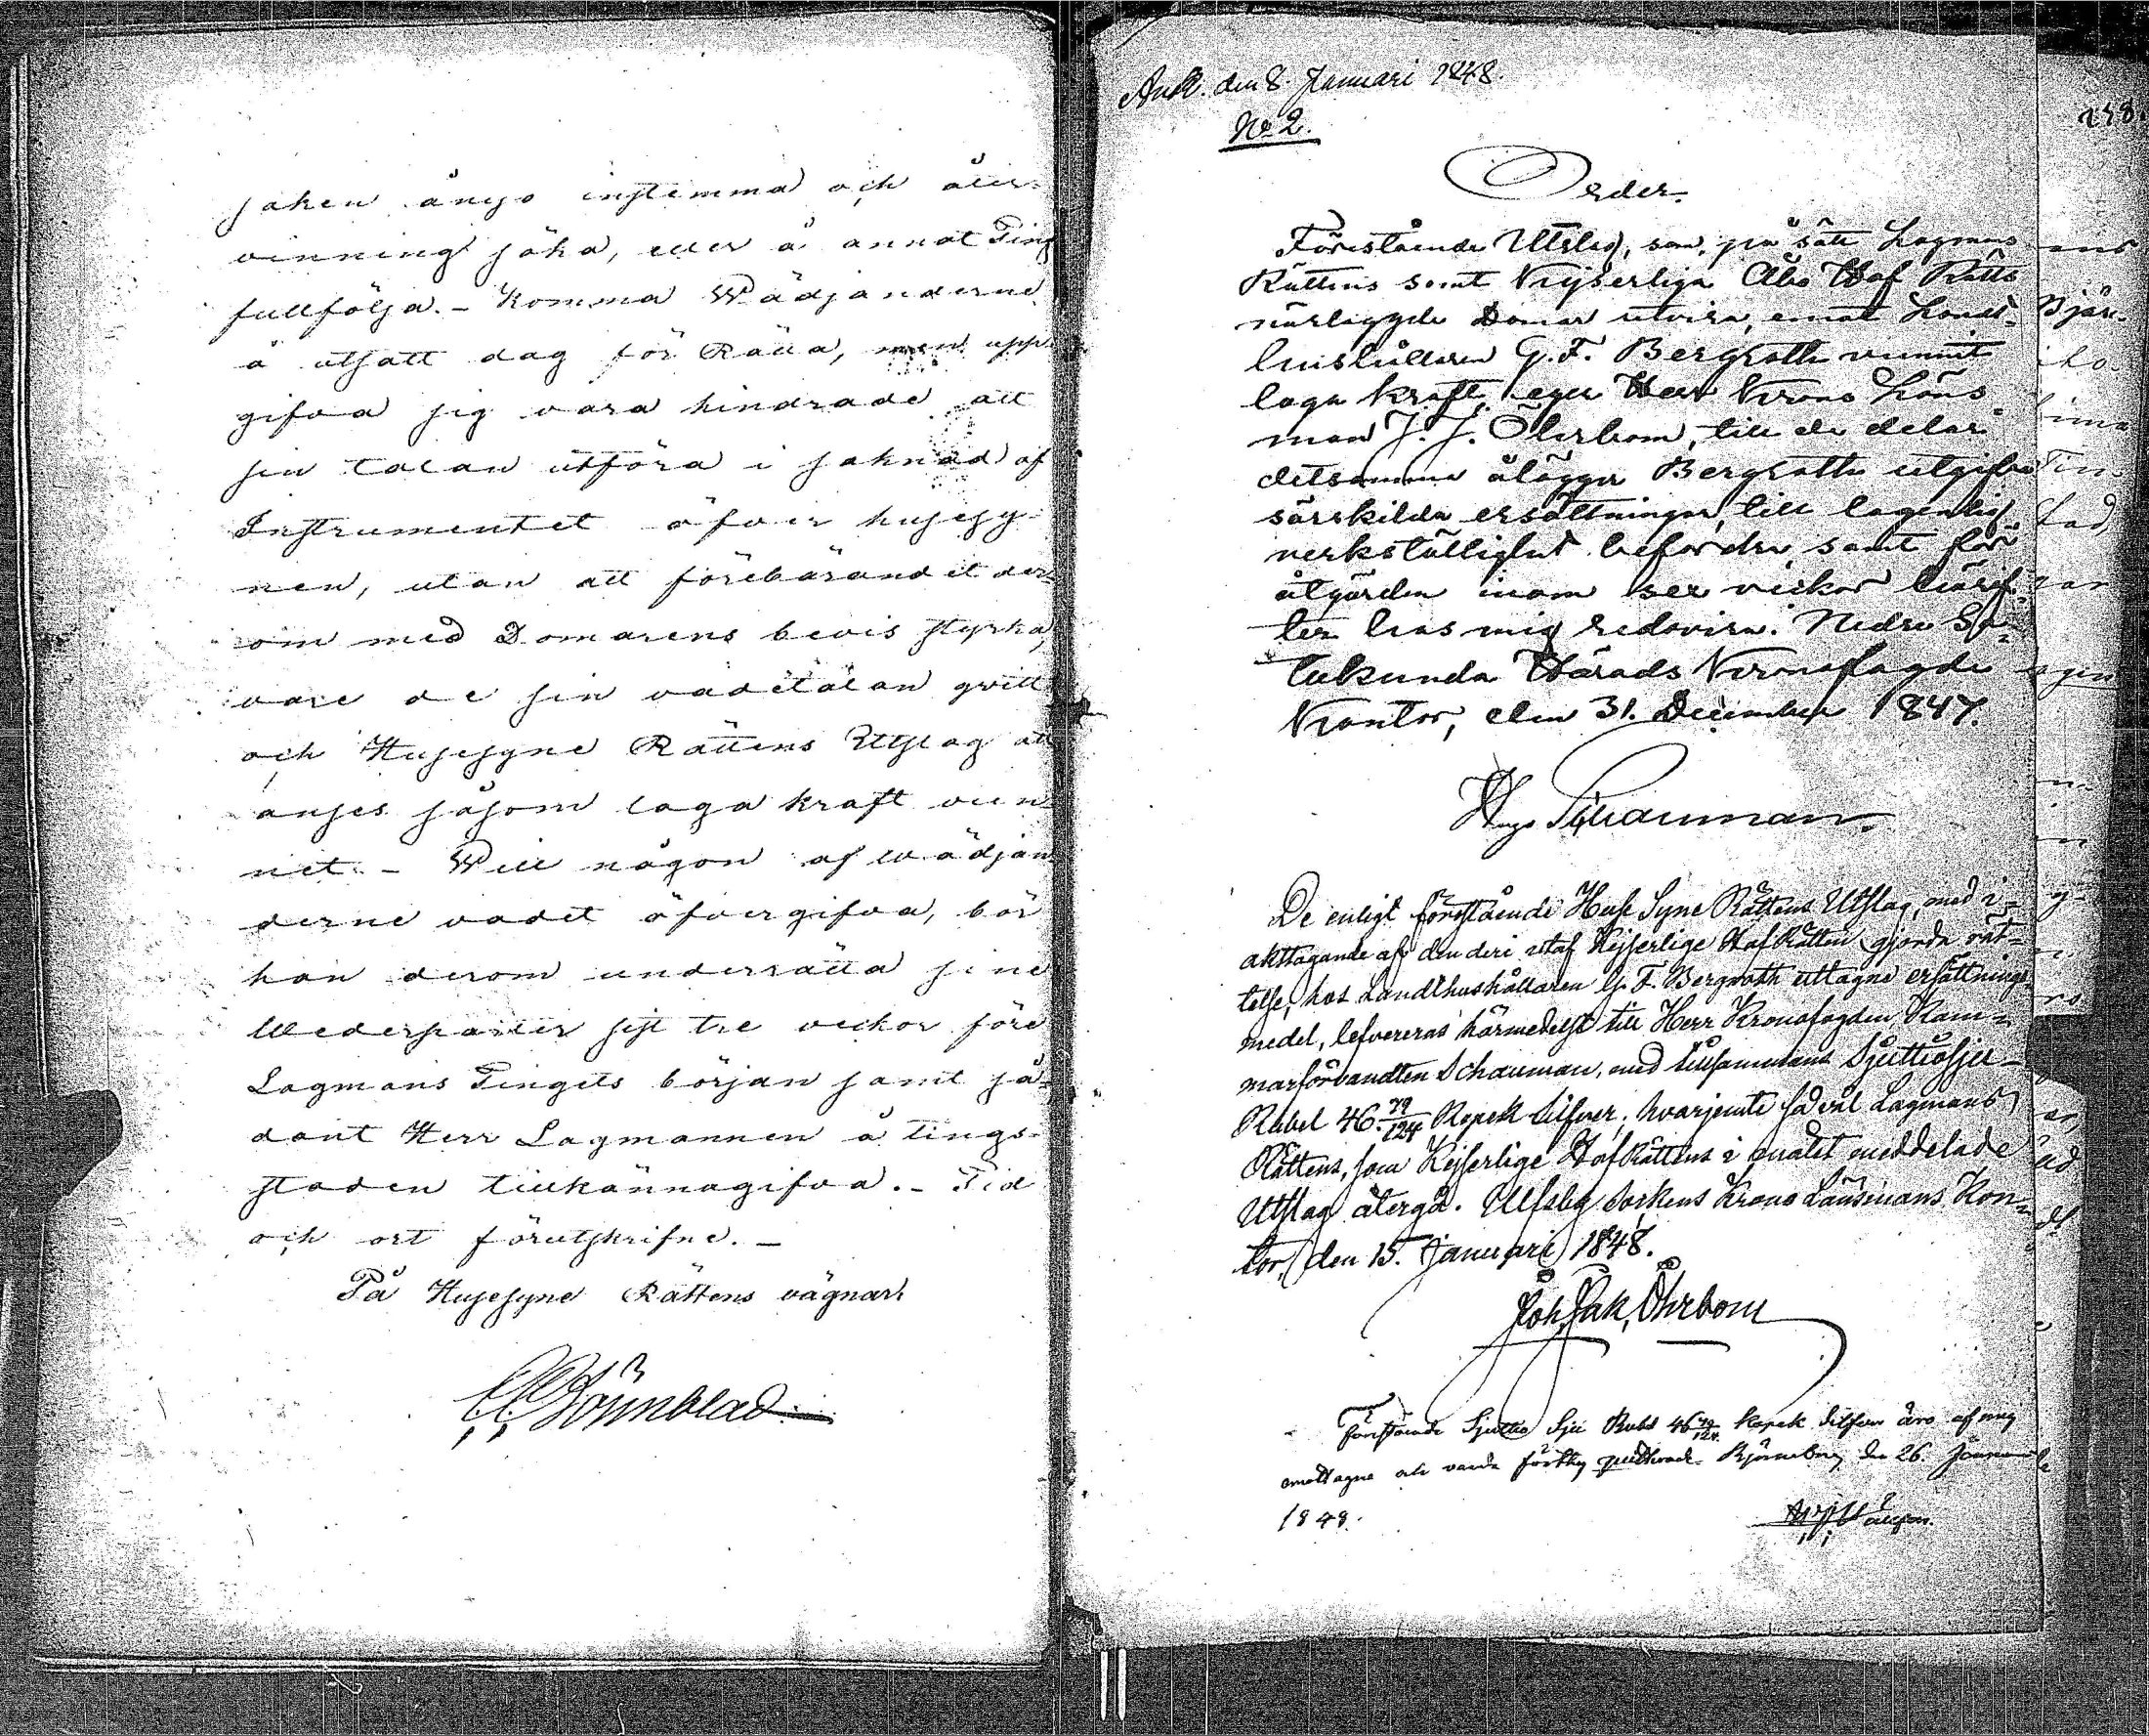 saken ånyo instemma och åter-
vinning söka, eller å annat Ting
fullfölja. - Komma Wädjanderne
å utsatt dag för Rätta, men upp-
gifva sig vara hindrade att
sin talan utföra i saknad af
Instrumentet öfver husesy-
nen, utan att förebärandet der-
om med Domarens bevis styrka,
vare de sin vadetalan qvitt
och Husesyne Rättens Utslag att
anses såsom laga kraft vun-
net. - Will någon af Wädjan-
derne vadet öfvergifva, bör
han derom underrätta sine
Wederparter sist tre veckor före
Lagmans Tingets början samt så-
dant Herr Lagmannen å tings-
staden tillkännagifva. - Tid
och ort förutskrifne. -
På Husesyne Rättens vägnar.
Rönnblad
Ank. den 8. Januari 1848.
No 2.
258.
Order.
Förestående Utslag, som, på sätt Lagmans
Rättens samt Kejserliga Åbo Hof Rätts
närlaggde Domar utvisa, emot Landt-
hushållaren G. F. Bergroth vunnit
laga kraft, eger Herr Krono Läns-
man J. J. Öhrbom, till de delar
detsamma ålägger Bergroth utgifva
särskilda ersättningar, till lagenlig
verkställighet befordra samt för
åtgärden inom sex veckor häref-
ter hos mig redovisa. Nedre Sa-
takunda Härads Kronofogde
Kontor, den 31. December 1847.
Hugo Schauman.
De enligt förestående Huse Syne Rättens Utslag, med i-
akttagande af den deri utaf Kejserlige Hof Rätten gjorda rät-
telse, hos Landthushållaren G. F. Bergroth uttagne ersättnings
medel, lefvereras härmedelst till Herr Kronofogden, Kam-
marförvandten Schauman, med tillsammans Sjuttiosju
Rubel 46 79/124 Kopek Silfver; hvarjemte så väl Lagmans
Rättens, som Kejserlige Hof Rättens i målet meddelade
Utslag återgå. Ulfsby Sockens Krono Länsmans Kon-
tor, den 15. Januari 1848.
Joh. Jak. Öhrbom
Förestående Sjuttio Sju Rubel 46 79/124 Kopek Silfver äro af mig
emottagne och varda förthy qvitterade. Björneborg den 26. Januari
1848.